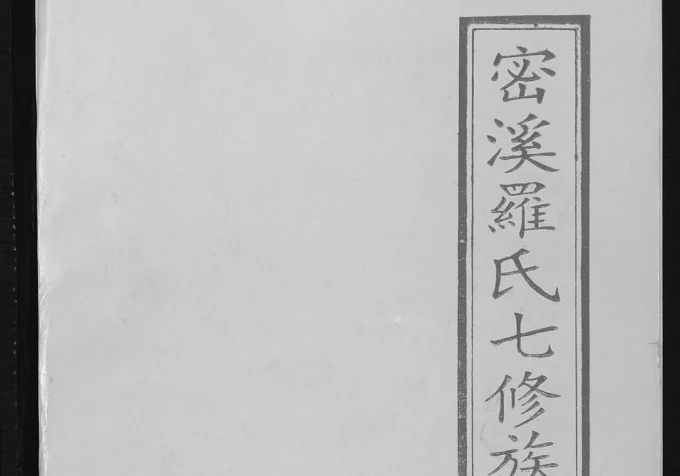 密溪羅氏七修族